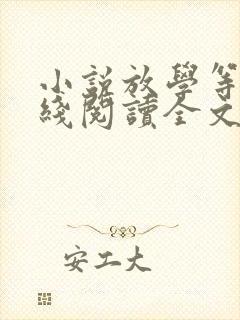 小說放學等
綫閱讀全文
安工大